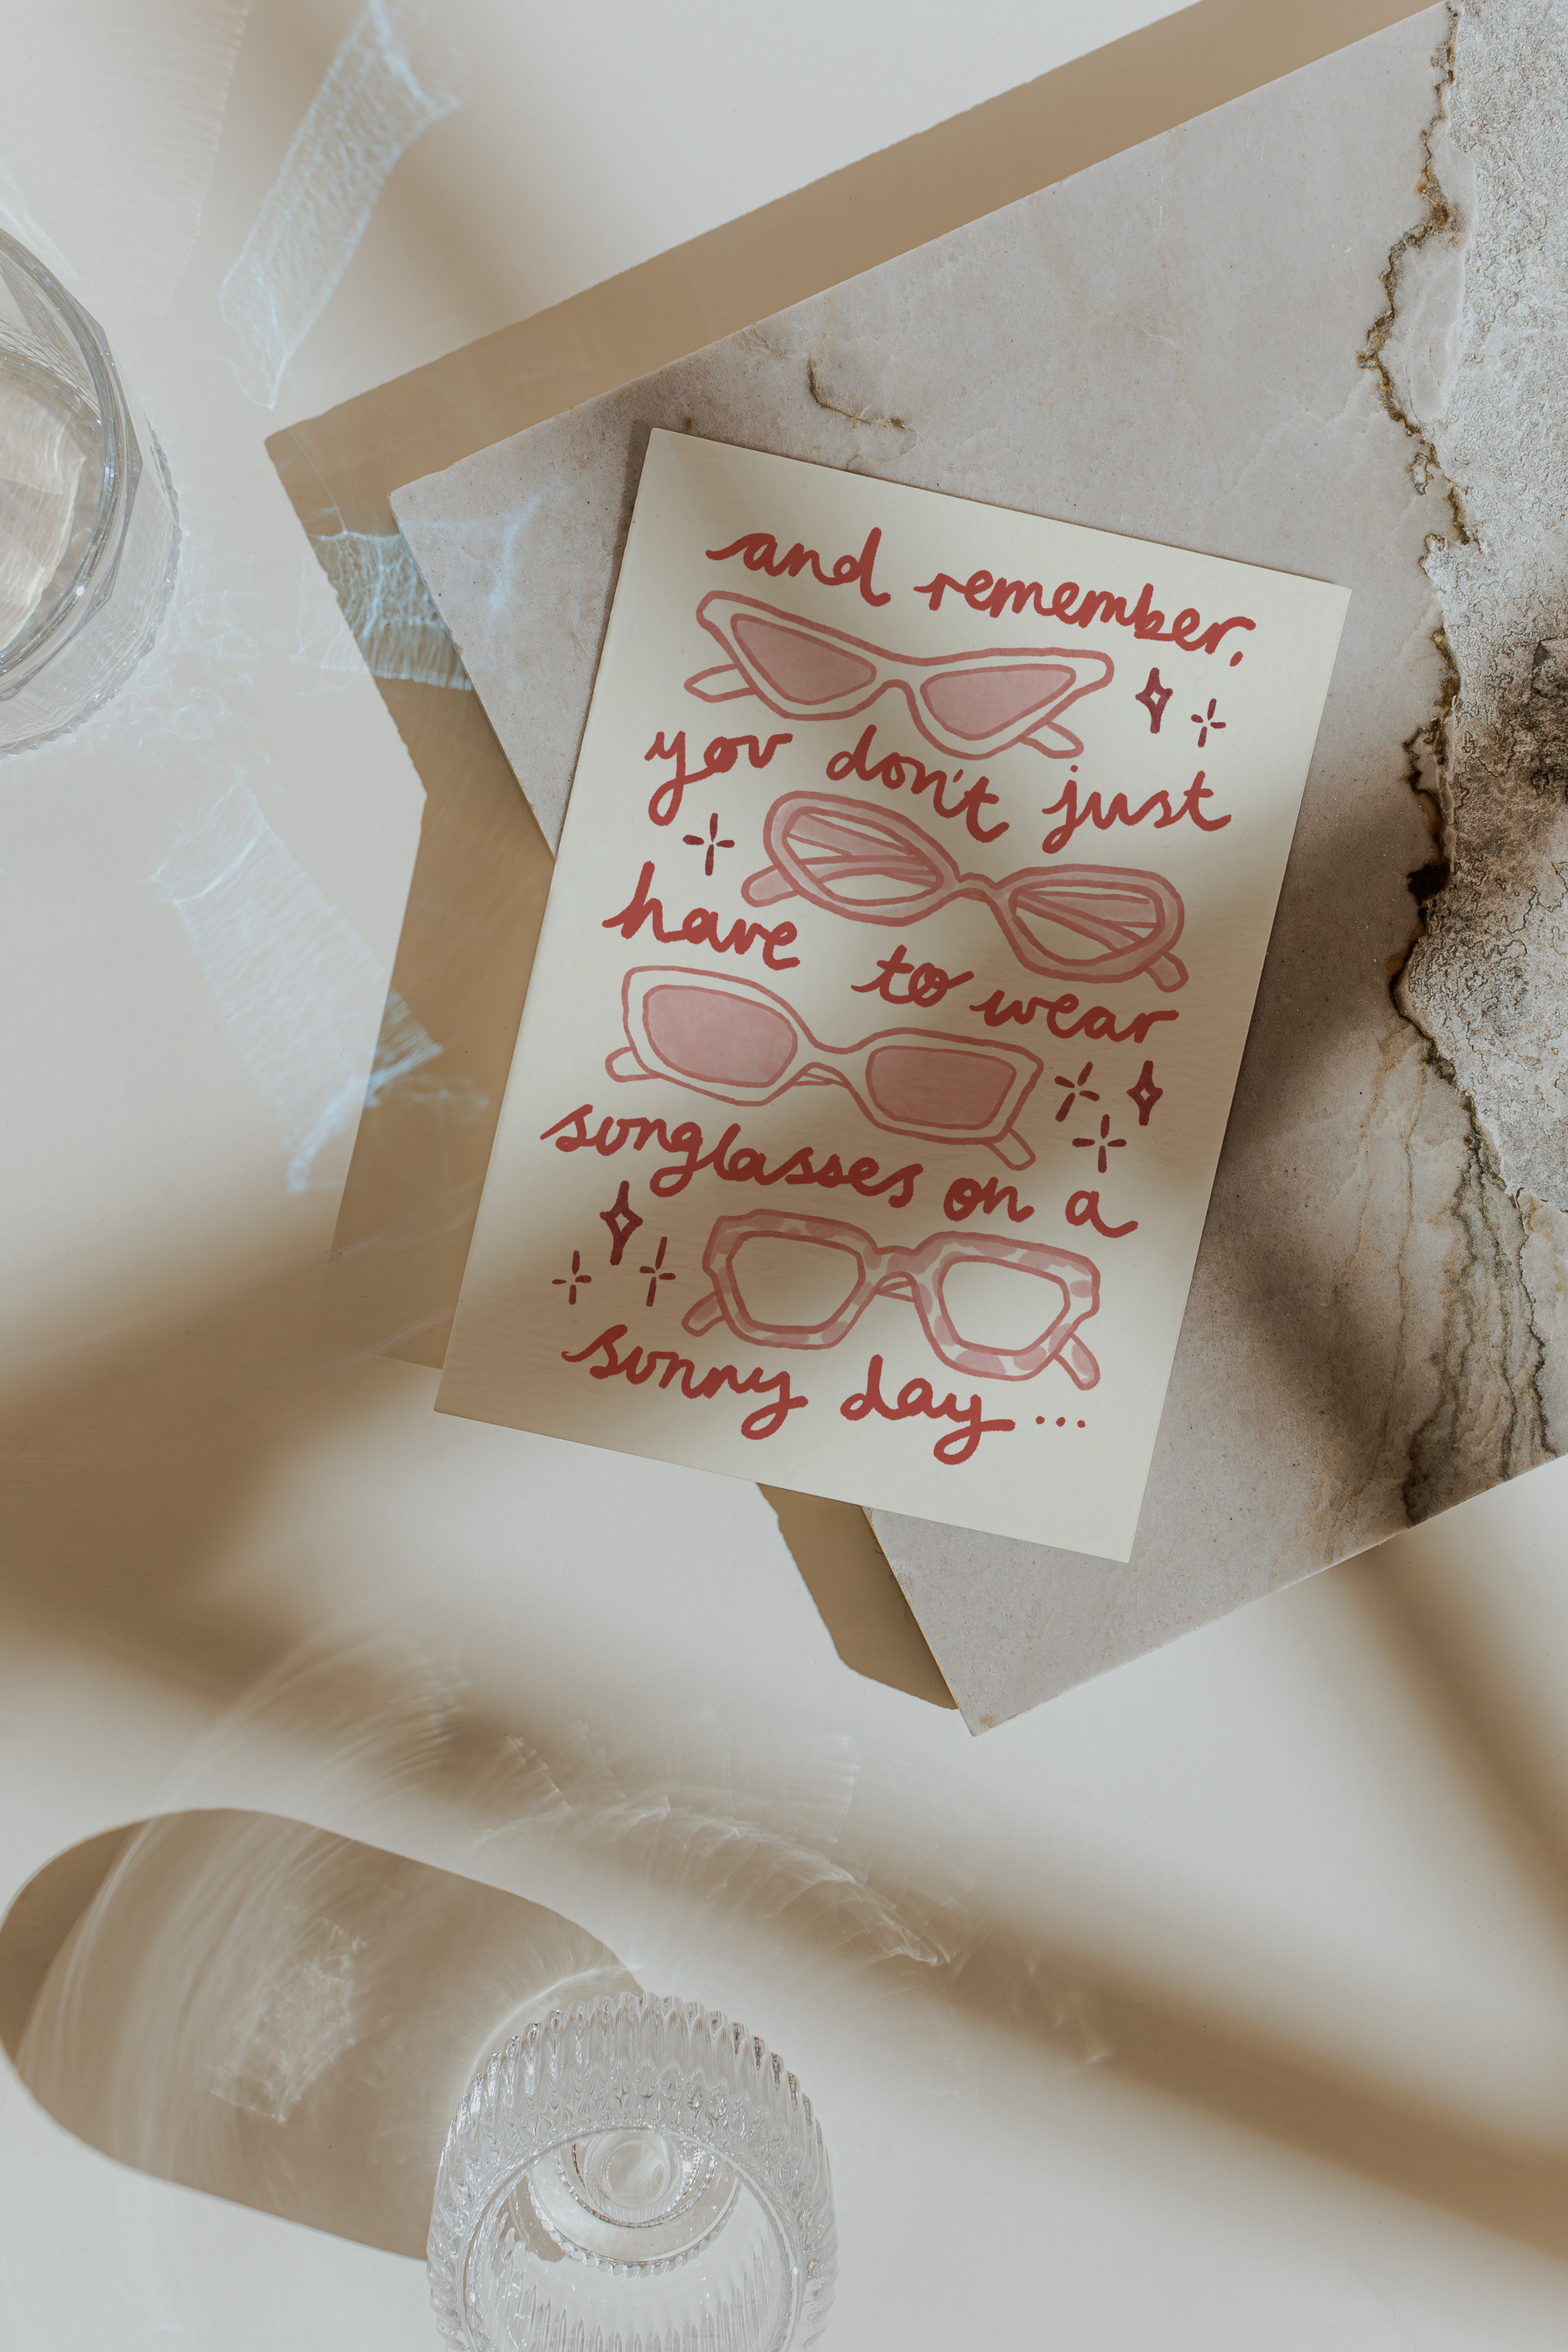 and remember,
you don't just
have to wear
sunglasses on a
sunny day...